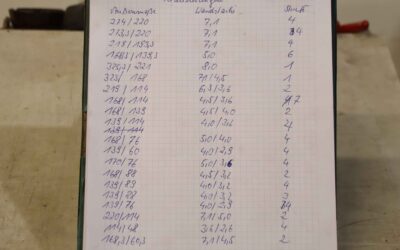 274/220 7,1 4
273,3/220 7,1 34
218/159,3 7,1 4
168,3/139,3 5,0 6
323,3/221 8,0 1
323/168 7,1/4,5 1
219/114 6,3/3,6 2
168/114 4,5/3,6 7
168/139 4,5/4,0 2
139/114 4,0/3,6 4
139/114
168/76 5,0/4,0 4
139/60 4,0/2,9 4
170/76 5,0/3,6 4
168/88 4,5/3,2 2
139/89 4,0/3,2 4
139/88 4,5/3,2
139/76 4,0/2,9 4
220/114 7,1/5,0 2
114/48 3,6/2,6 4
168,3/60,3 7,1/4,5 2